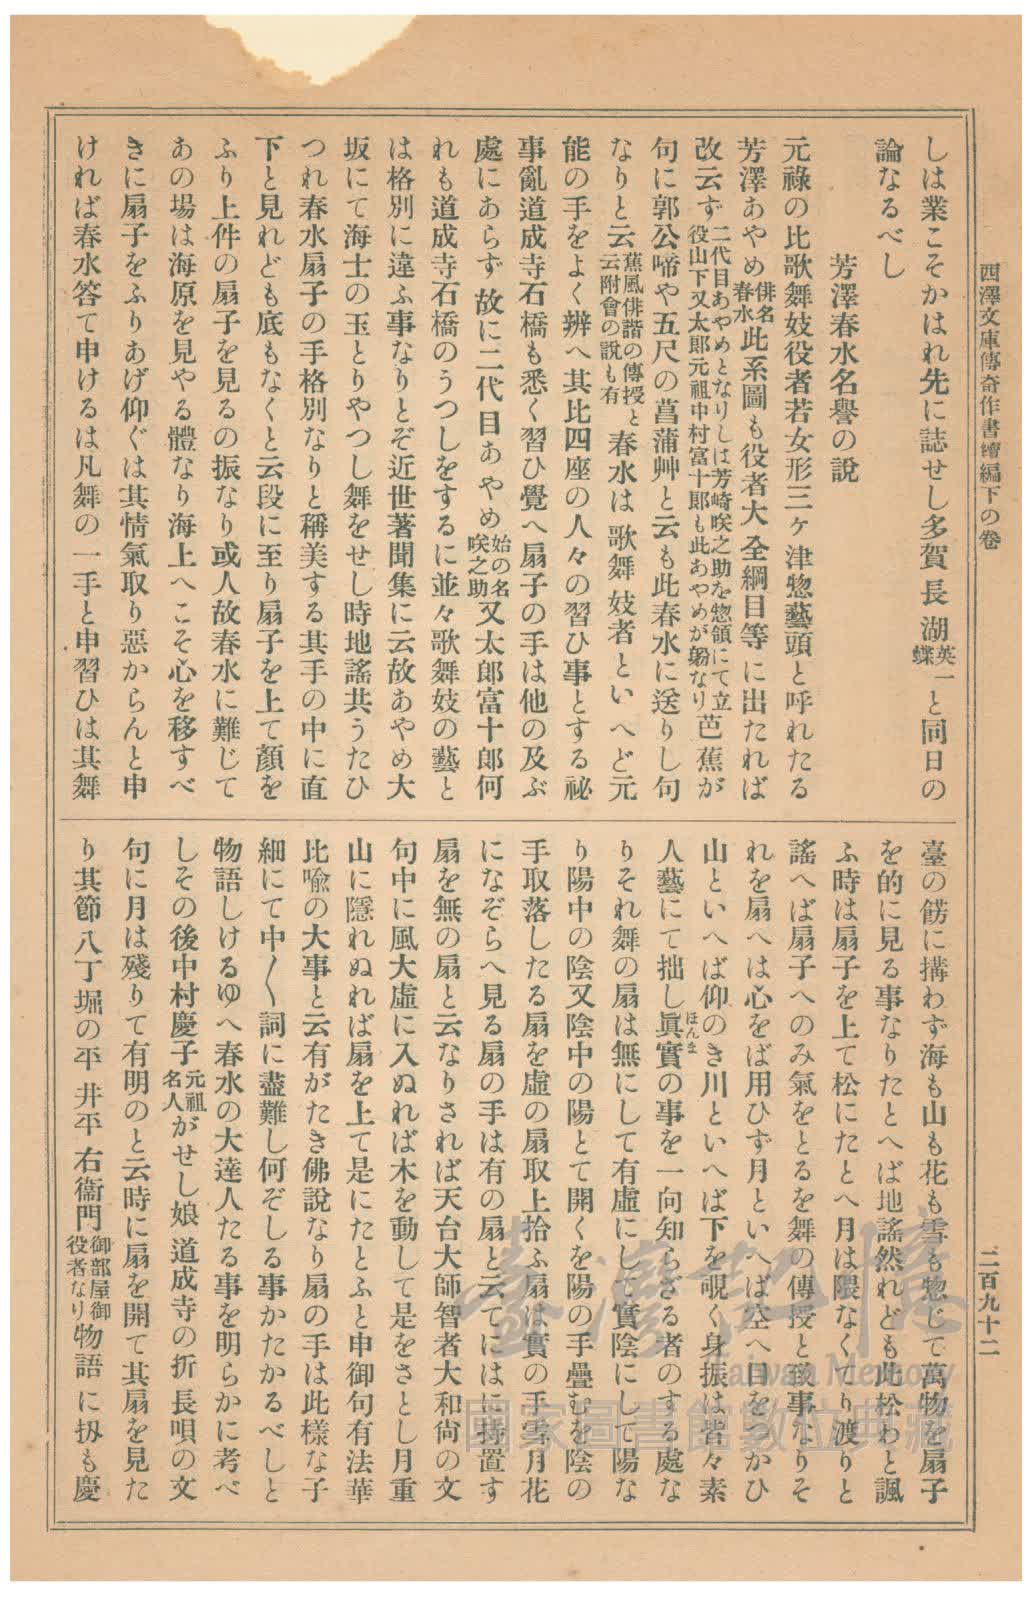 西澤文庫傳奇作書續編下の卷
二百九十二
しは業こそかはれ先に誌せし多賀長湖英一蝶と同日の
論なるべし
芳澤春水名譽の說
元祿の比歌舞妓役者若女形三ヶ津惣藝頭と呼れたる
芳澤あやめ俳名春水此系圖も役者大全綱目等に出たれば
改云ず二代目あやめとなりしは芳崎咲之助を惣領にて立役山下又太郎元祖中村富十郎も此あやめが男なり芭蕉が
句に郭公啼や五尺の菖蒲艸と云も此春水に送りし句
なりと云蕉風俳諧の傳授と云附會の說も有春水は歌舞妓者といへど元
能の手をよく辨へ其比四座の人々の習ひ事とする祕
事亂道成寺石橋も悉く習ひ覺へ扇子の手は他の及ぶ
處にあらず故に二代目あやめ始の名咲之助又太郎富十郎何
れも道成寺石橋のうつしをするに並々歌舞妓の藝と
は格別に違ふ事なりとぞ近世著聞集に云故あやめ大
坂にて海士の玉とりやつし舞をせし時地謠共うたひ
つれ春水扇子の手格別なりと稱美する其手の中に直
下と見れども底もなくと云段に至り扇子を上て顏を
ふり上件の扇子を見るの振なり或人故春水に難じて
あの場は海原を見やる體なり海上へこそ心を移すべ
きに扇子をふりあげ仰ぐは其情氣取り惡からんと申
ければ春水答て申けるは凡舞の一手と申習ひは其舞
臺の餝に搆わず海も山も花も雪も惣じて萬物を扇子
を的に見る事なりたとへば地謠然れども此松わと諷
ふ時は扇子を上て松にたとへ月は隈なくてり渡りと
謠へば扇子へのみ氣をとるを舞の傳授と致事なりそ
れを扇へは心をば用ひず月といへば空へ目をつかひ
山といへば仰のき川といへば下を覗く身振は皆々素
人藝にて拙し眞實ほんまの事を一向知らざる者のする處な
りそれ舞の扇は無にして有虛にして實陰にして陽な
り陽中の陰又陰中の陽とて開くを陽の手疊むを陰の
手取落したる扇を虛の扇取上拾ふ扇は實の手雪月花
になぞらへ見る扇の手は有の扇と云てにはに持置す
扇を無の扇と云なりされば天台大師智者大和尙の文
句中に風大虛に入ぬれば木を動して是をさとし月重
山に隱れぬれば扇を上て是にたとふと申御句有法華
比喩の大事と云有がたき佛說なり扇の手は此樣な子
細にて中〱詞に盡難し何ぞしる事かたかるべしと
物語しけるゆへ春水の大達人たる事を明らかに考べ
しその後中村慶子元祖名人がせし娘道成寺の折長唄の文
句に月は殘りて有明のと云時に扇を開て其扇を見た
り其節八丁堀の平井平右衞門御部屋御役者なり物語に扨も慶